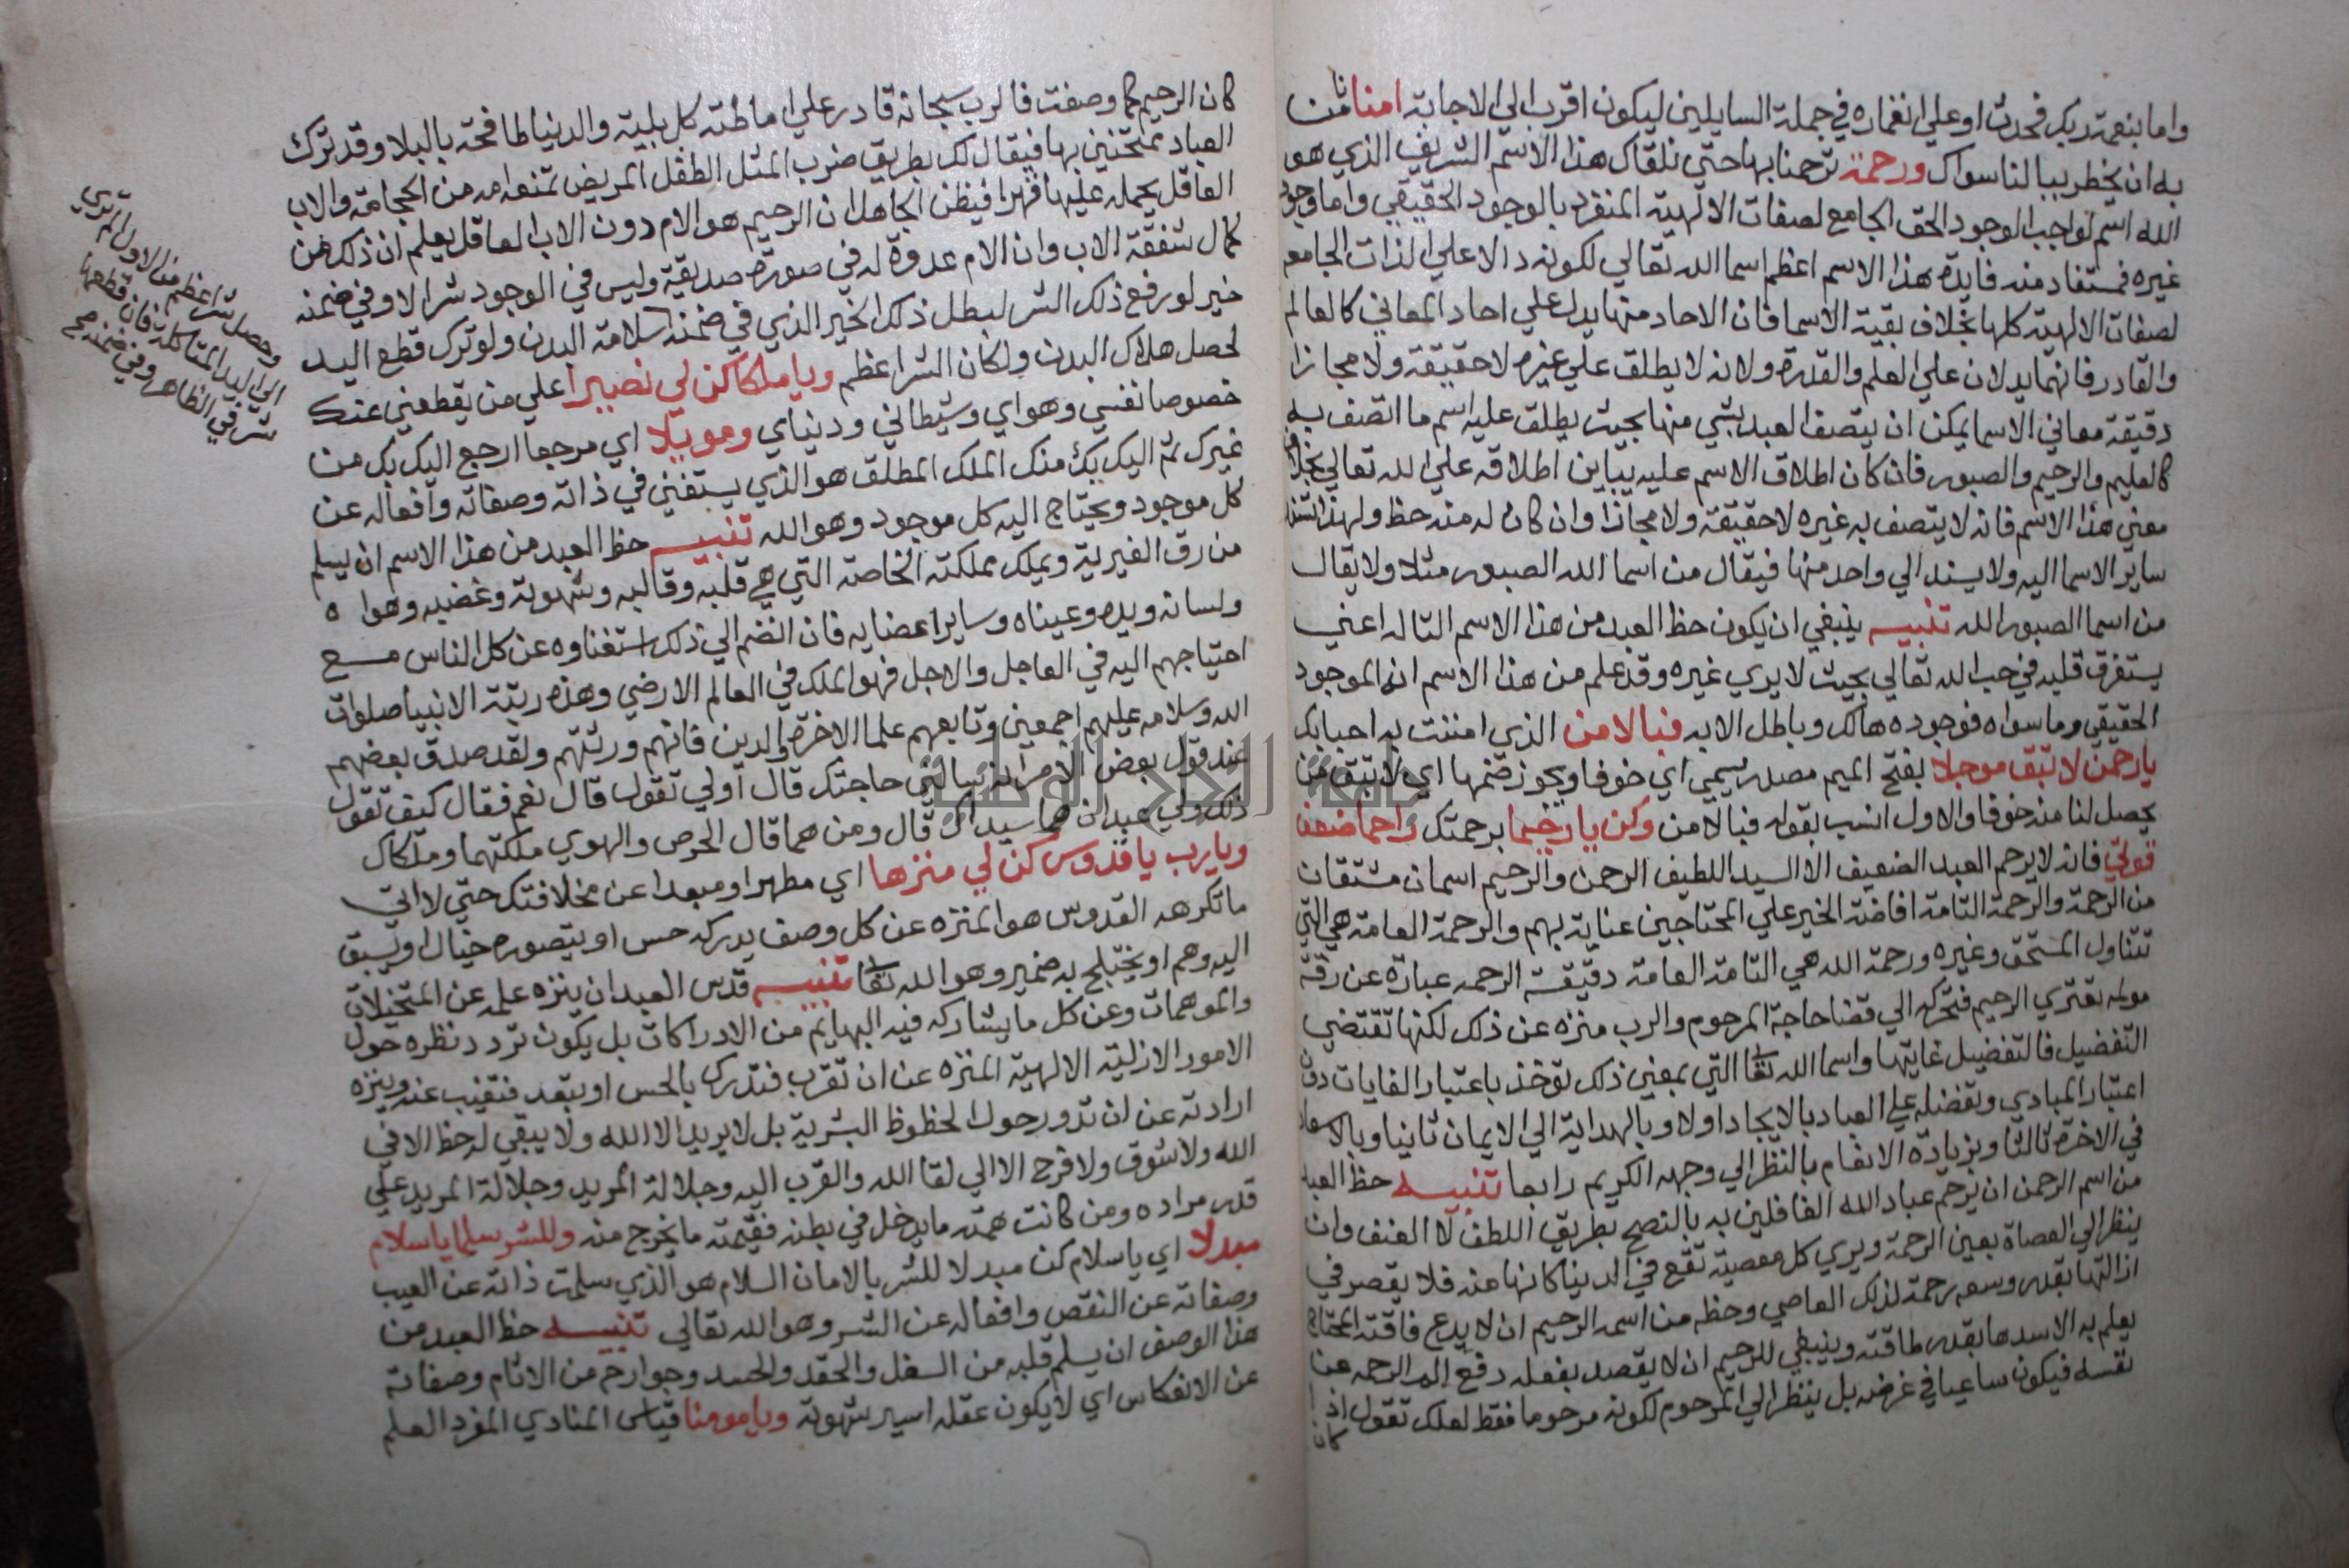 واما بنعمة ربك فحدث او علي انغماره في جملة السايلين ليكون اقرب الي الاجابة امنا تمن
به ان يخطر ببالنا سواك ورحمة ترحمنا بها حتي نلقاك هذا الاسم الشريف الذي هو
الله اسم لواجب الوجود الحق الجامع لصفات الالهية المنفرد بالوجود الحقيقي واما وجود
غيره فمستفاد منه فايدة هذا الاسم اعظم اسما الله تعالي لكونه دالا علي الذات الجامع
لصفات الالهية كلها بخلاف بقية الاسما فان الاحاد منها يدل علي احاد المعاني كالعالم
والقادر فانهما يدلان علي العلم والقدرة ولانه لا يطلق علي غيره لا حقيقة ولا مجازا
دقيقة معاني الاسما يمكن ان يتصف العبد بشي منها بحيث يطلق عليه اسم ما اتصف به
كالعليم والرحيم والصبور فان كان اطلاق الاسم عليه يباين اطلاقه علي الله تعالي بخلاف
معني هذا الاسم فانه لا يتصف به غيره لا حقيقة ولا مجازا وان كان له منه حظ ولهذا تسند
ساير الاسما اليه ولا يسند الي واحد منها فيقال من اسما الله الصبور مثلا ولا يقال
من اسما الصبور الله تنبيه ينبغي ان يكون حظ العبد من هذا الاسم التاله اعني
يستغرق قلبه في حب الله تعالي بحيث لا يري غيره وقد علم من هذا الاسم انه الموجود
الحقيقي وما سواه فوجوده هالك وباطل الا به فبالامن الذي امننت به احبابك
يارحمن لا تبق موجلا بفتح الميم مصدر ميمي اي خوفا ويجوز ضمها اي لا تبق من
يحصل لنا منه خوفا والاول انسب بقوله فبالامن وكن يا رحيما برحمتك راحما ضعف
قوتي فانه لا يرحم العبد الضعيف الا السيد اللطيف الرحمن والرحيم اسمان مشتقان
من الرحمة والرحمة التامة افاضة الخير علي المحتاجين عناية بهم والرحمة العامة هي التي
تتناول المستحق وغيره ورحمة الله هي التامة العامة دقيقة الرحمه عبارة عن رقة
مولمه تعتري الرحيم فتحركه الي قضا حاجة المرحوم والرب منزه عن ذلك لكنها تقتضي
التفضيل فالتفضيل غايتها واسما الله تعا التي بمعني ذلك توخذ باعتبار الغايات دون
اعتبار المبادي وتفضله علي العباد بالايجاد اولا وبالهداية الي الايمان ثانيا وبالاسعاد
في الاخرة ثالثا وبزيادة الانعام بالنظر الي وجهه الكريم رابعا تنبيه حظ العبد
من اسم الرحمن ان يرحم عباد الله الغافلين به بالنصح بطريق اللطف لا العنف وان
ينظر الي العصاة بعين الرحمة ويري كل معصية تقع في الدينا كانها منه فلا يقصر في
ازالتها بقدر وسعه رحمة لذلك العاصي وحظه من اسمه الرحيم ان لا يدع فاقة المحتاج
يعلم به الا سدها بقدر طاقته وينبغي للرحيم ان لا يقصد بفعله دفع الم الرحمه عن
نفسه فيكون ساعيا في غرضه بل ينظر الي المرحوم لكونه مرحوما فقط لعلك تقول اذا
كان
كان الرحيم كما وصفت فالرب سبحانه قادر علي اماطته كل بلية والدنيا طافحة بالبلا وقد ترك
العباد ممتحنين بها فيقال لك بطريق ضرب المثل الطفل المريض تمنعه امه من الحجامة والاب
العاقل يحمله عليها قهرا فيظن الجاهل ان الرحيم هو الام دون الاب العاقل يعلم ان ذلك من
كمال شفقة الاب وان الام عدوة له في صورة صديقة وليس في الوجود شر الا وفي ضمنه
خير لو رفع ذلك الشر لبطل ذلك الخير الذي في ضمنه سلامة البدن ولو ترك قطع اليد
لحصل هلاك البدن ولكان الشر اعظم ويا ملكا كن لي نصيرا علي من يقطعني عنك
خصوصا نفسي وهواي وشيطاني ودنياي ومويلا اي مرجعا ارجع اليك بك من
غيرك ثم اليك بك منك الملك المطلق هو الذي يستغني في ذاته وصفاته وافعاله عن
كل موجود ويحتاج اليه كل موجود وهو الله تنبيه حظ العبد من هذا الاسم ان يسلم
من رق الغيرية ويملك مملكته الخاصة التي هي قلبه وقالبه وشهوته وغضبه وهواه
ولسانه ويده وعيناه وساير اعضايه فان انضم الي ذلك استغناوه عن كل الناس مع
احتياجهم اليه في العاجل والاجل فهو الملك في العالم الارضي وهذه رتبة الانبيا صلوات
الله وسلامه عليهم اجمعين وتابعهم علما الاخرة والدين فانهم ورثتهم ولقد صدق بعضهم
عند قول بعض الامرا له سالني حاجتك قال أولي تقول قال نعم فقال كيف تقول
ذلك ولي عبدان هما سيداك قال ومن هما قال الحرص والهوي ملكتهما وملكاك
ويارب يا قدوس كن لي منزها اي مطهرا ومبعدا عن مخلافتك حتي لا اتي
ما تكرهه القدوس هو المنزه عن كل وصف يدركه حس او يتصوره خيال او يسبق
اليه وهم او يختلج به ضمير وهو الله تعا تنبيه قدس العبد ان ينزه علمه عن المتخيلات
والموهمات وعن كل ما يشاركه فيه البهايم من الادراكات بل يكون تردد نظره حول
الامور الازلية الالهية المنزه عن ان تقرب فتدرك بالحس او تبعد فتغيب عنه وينزه
ارادته عن ان تدور حول الحظوظ البشرية بل لا يريد الا الله ولا يبقي له حظ الا في
الله ولا شوق ولا فرح الا الي لقا الله والقرب اليه وجلالة المريد وجلالة المريد علي
قدر مراده ومن كانت همته ما يدخل في بطنه فقيمته ما يخرج منه وللشر سلما يا سلام
مبدلا اي يا سلام كن مبدلا للشر بالامان السلام هو الذي سلمت ذاته عن العيب
وصفاته عن النقص وافعاله عن الشر وهو الله تعالي تنبيه حظ العبد من
هذا الوصف ان يسلم قلبه من الغل والحقد والحسد وجوارحه من الاثام وصفاته
عن الانعكاس اي لا يكون عقله اسير شهوته ويا مومنا قياس المنادي المفرد العلم
وحصل شر اعظم من الاول الم تري
الي اليد المتاكلة فان قطعها
شر في الظاهر وفي ضمنه صح
جامعة النجاح الوطنية